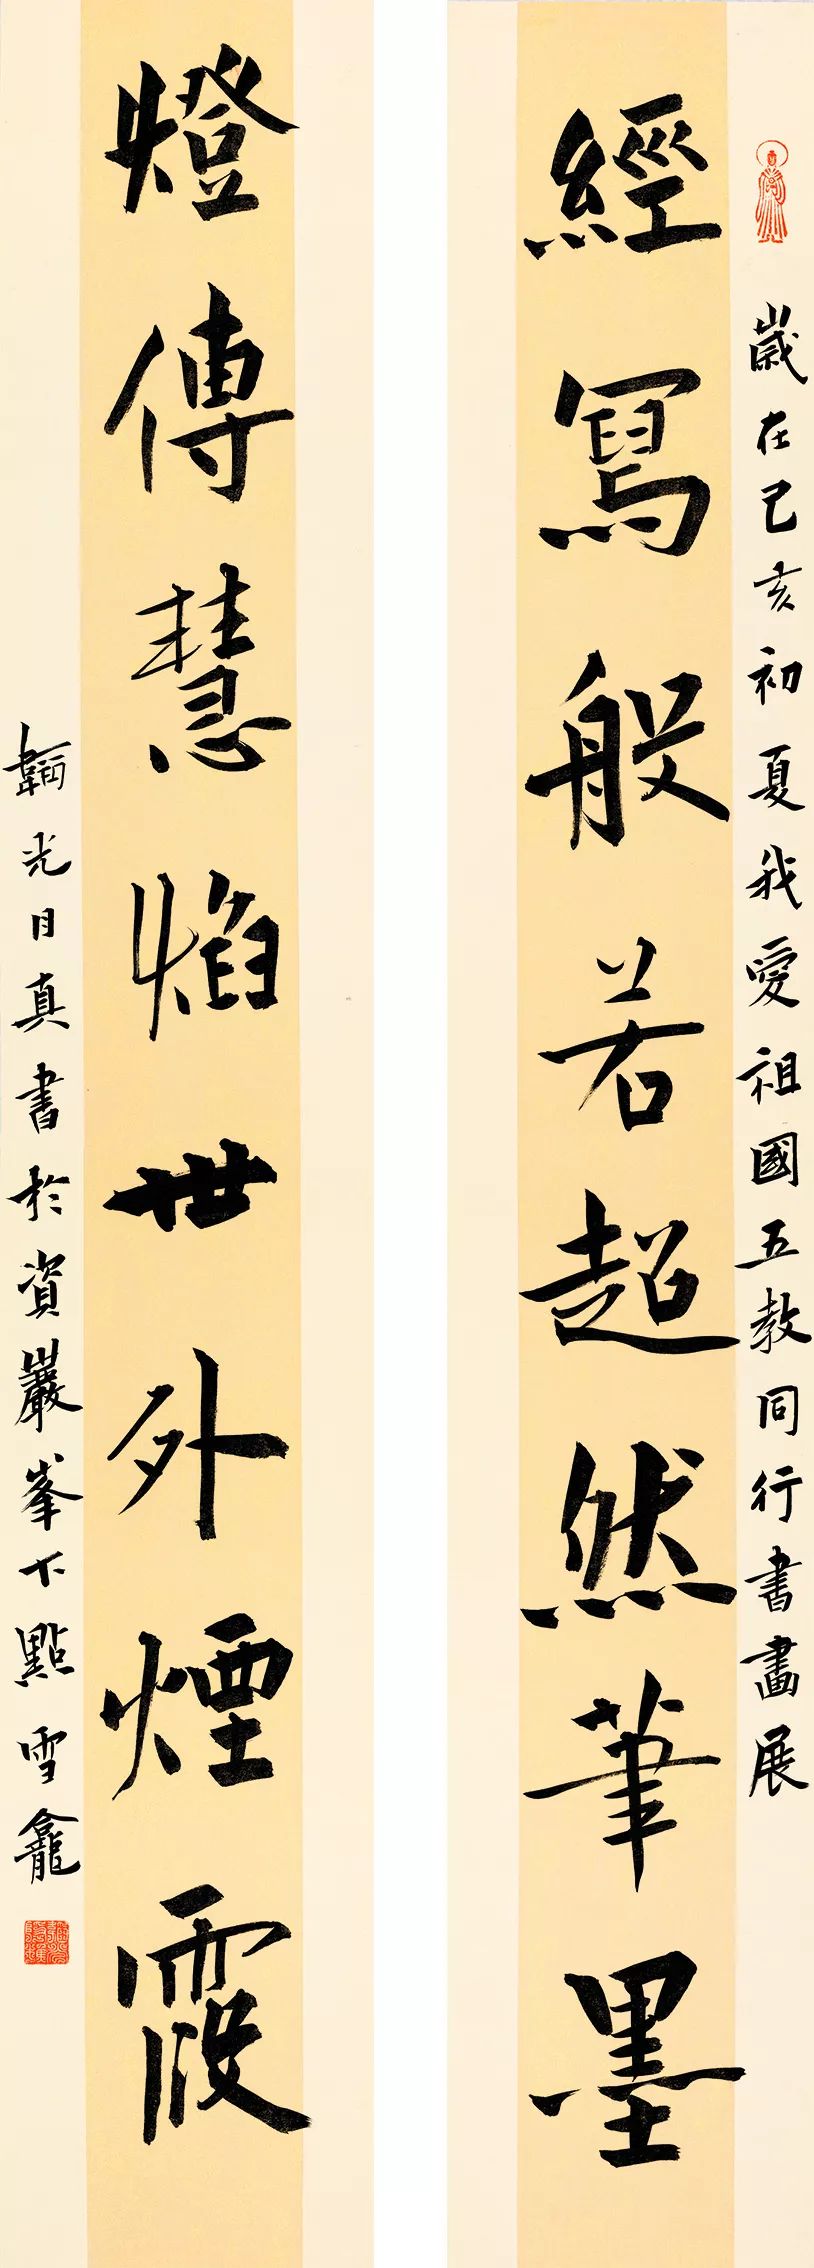 歲在己亥初夏我愛祖國五教同行書畫展
經寫般若超然筆墨
燈傳慧焰世外煙霞
韜光月真書於資巖峯下點雪龕